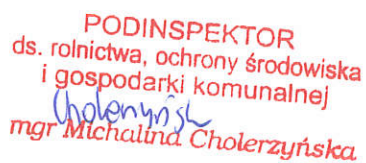 PODINSPEKTOR
ds. rolnictwa, ochrony środowiska
i gospodarki komunalnej
Cholerzyńsk
mgr Michalina Cholerzyńska